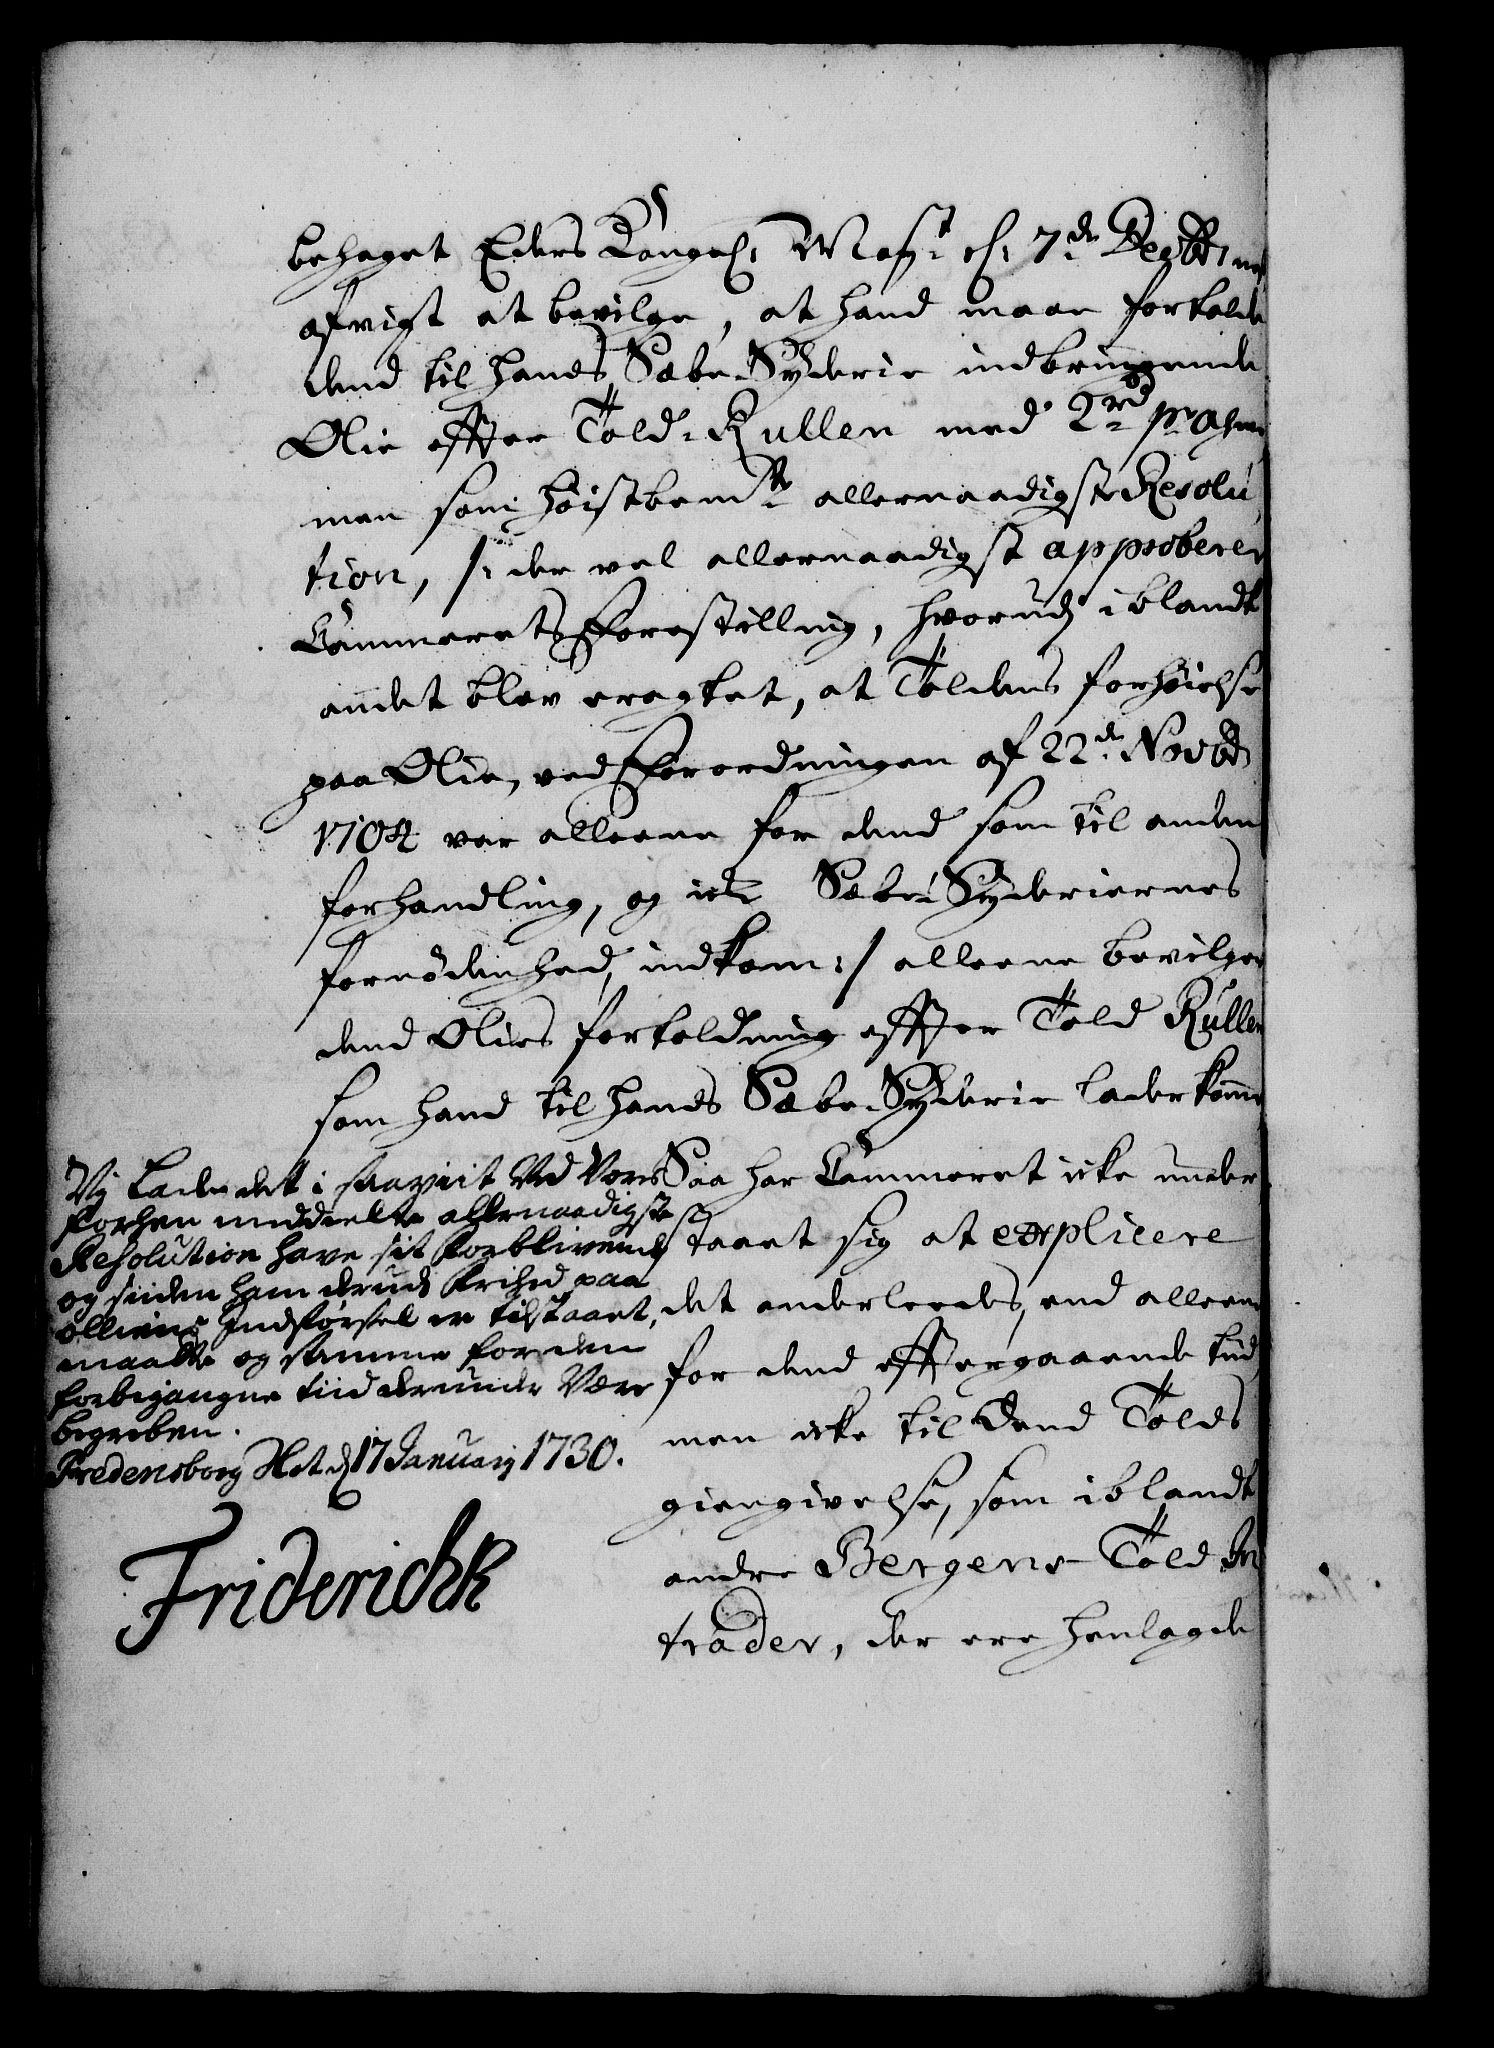 behaget Eders Kongel. Mayst. d. 7de Decbr.
afvigt at bevilge, at hand maae fortolde
dend til hands Sæbe-Syderie indbringende
Olie effter Told-Rullen med 2 rd pr. Ahm
men som høistbemte allernaadigste Resolu
tion, /: der vel allernaadigst approberer
Cammerets Forestilling, hvorudj iblandt
andet blev eragtet, at Toldens forhøielse
paa Olie, ved Forordningen af 22de Novbr
1704 var alleene for dend som til anden
forhandling, og icke Sæbe-Syderiernes
fornødenhed, indkom :/ alleene bevilger
dend Olies fortoldning effter Told Rullen
som hand til hands Sæbe-Syderie lader komme
Saa har Cammeret icke under
staaet sig at explicere
det anderleedes, end alleene
for dend efftergaaende tiid
men icke til dend Tolds
giengivelse, som iblandt
andre Bergens Told In
trader, der ere henlagde
Vj Lade det i saaviit Ved Vores
forhen meddeelte allernaadigste
Resolution have sit forblivende
og siiden ham derudj frihed paa
olliens Indførsel er tilstaaet,
maatte og samme for den
forbigangne tiid derunder Være
begreben.
Fredensborg Slot d. 17 Januarij 1730.
Friderich R